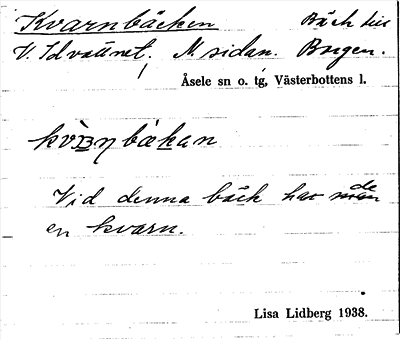 Kvarnbäcken Bäck till
V. Idvattnet, N sidan. Borgen.
Åsele sn o. tg, Västerbottens l.
Vid denna bäck har de
en kvarn.
Lisa Lidberg 1938.